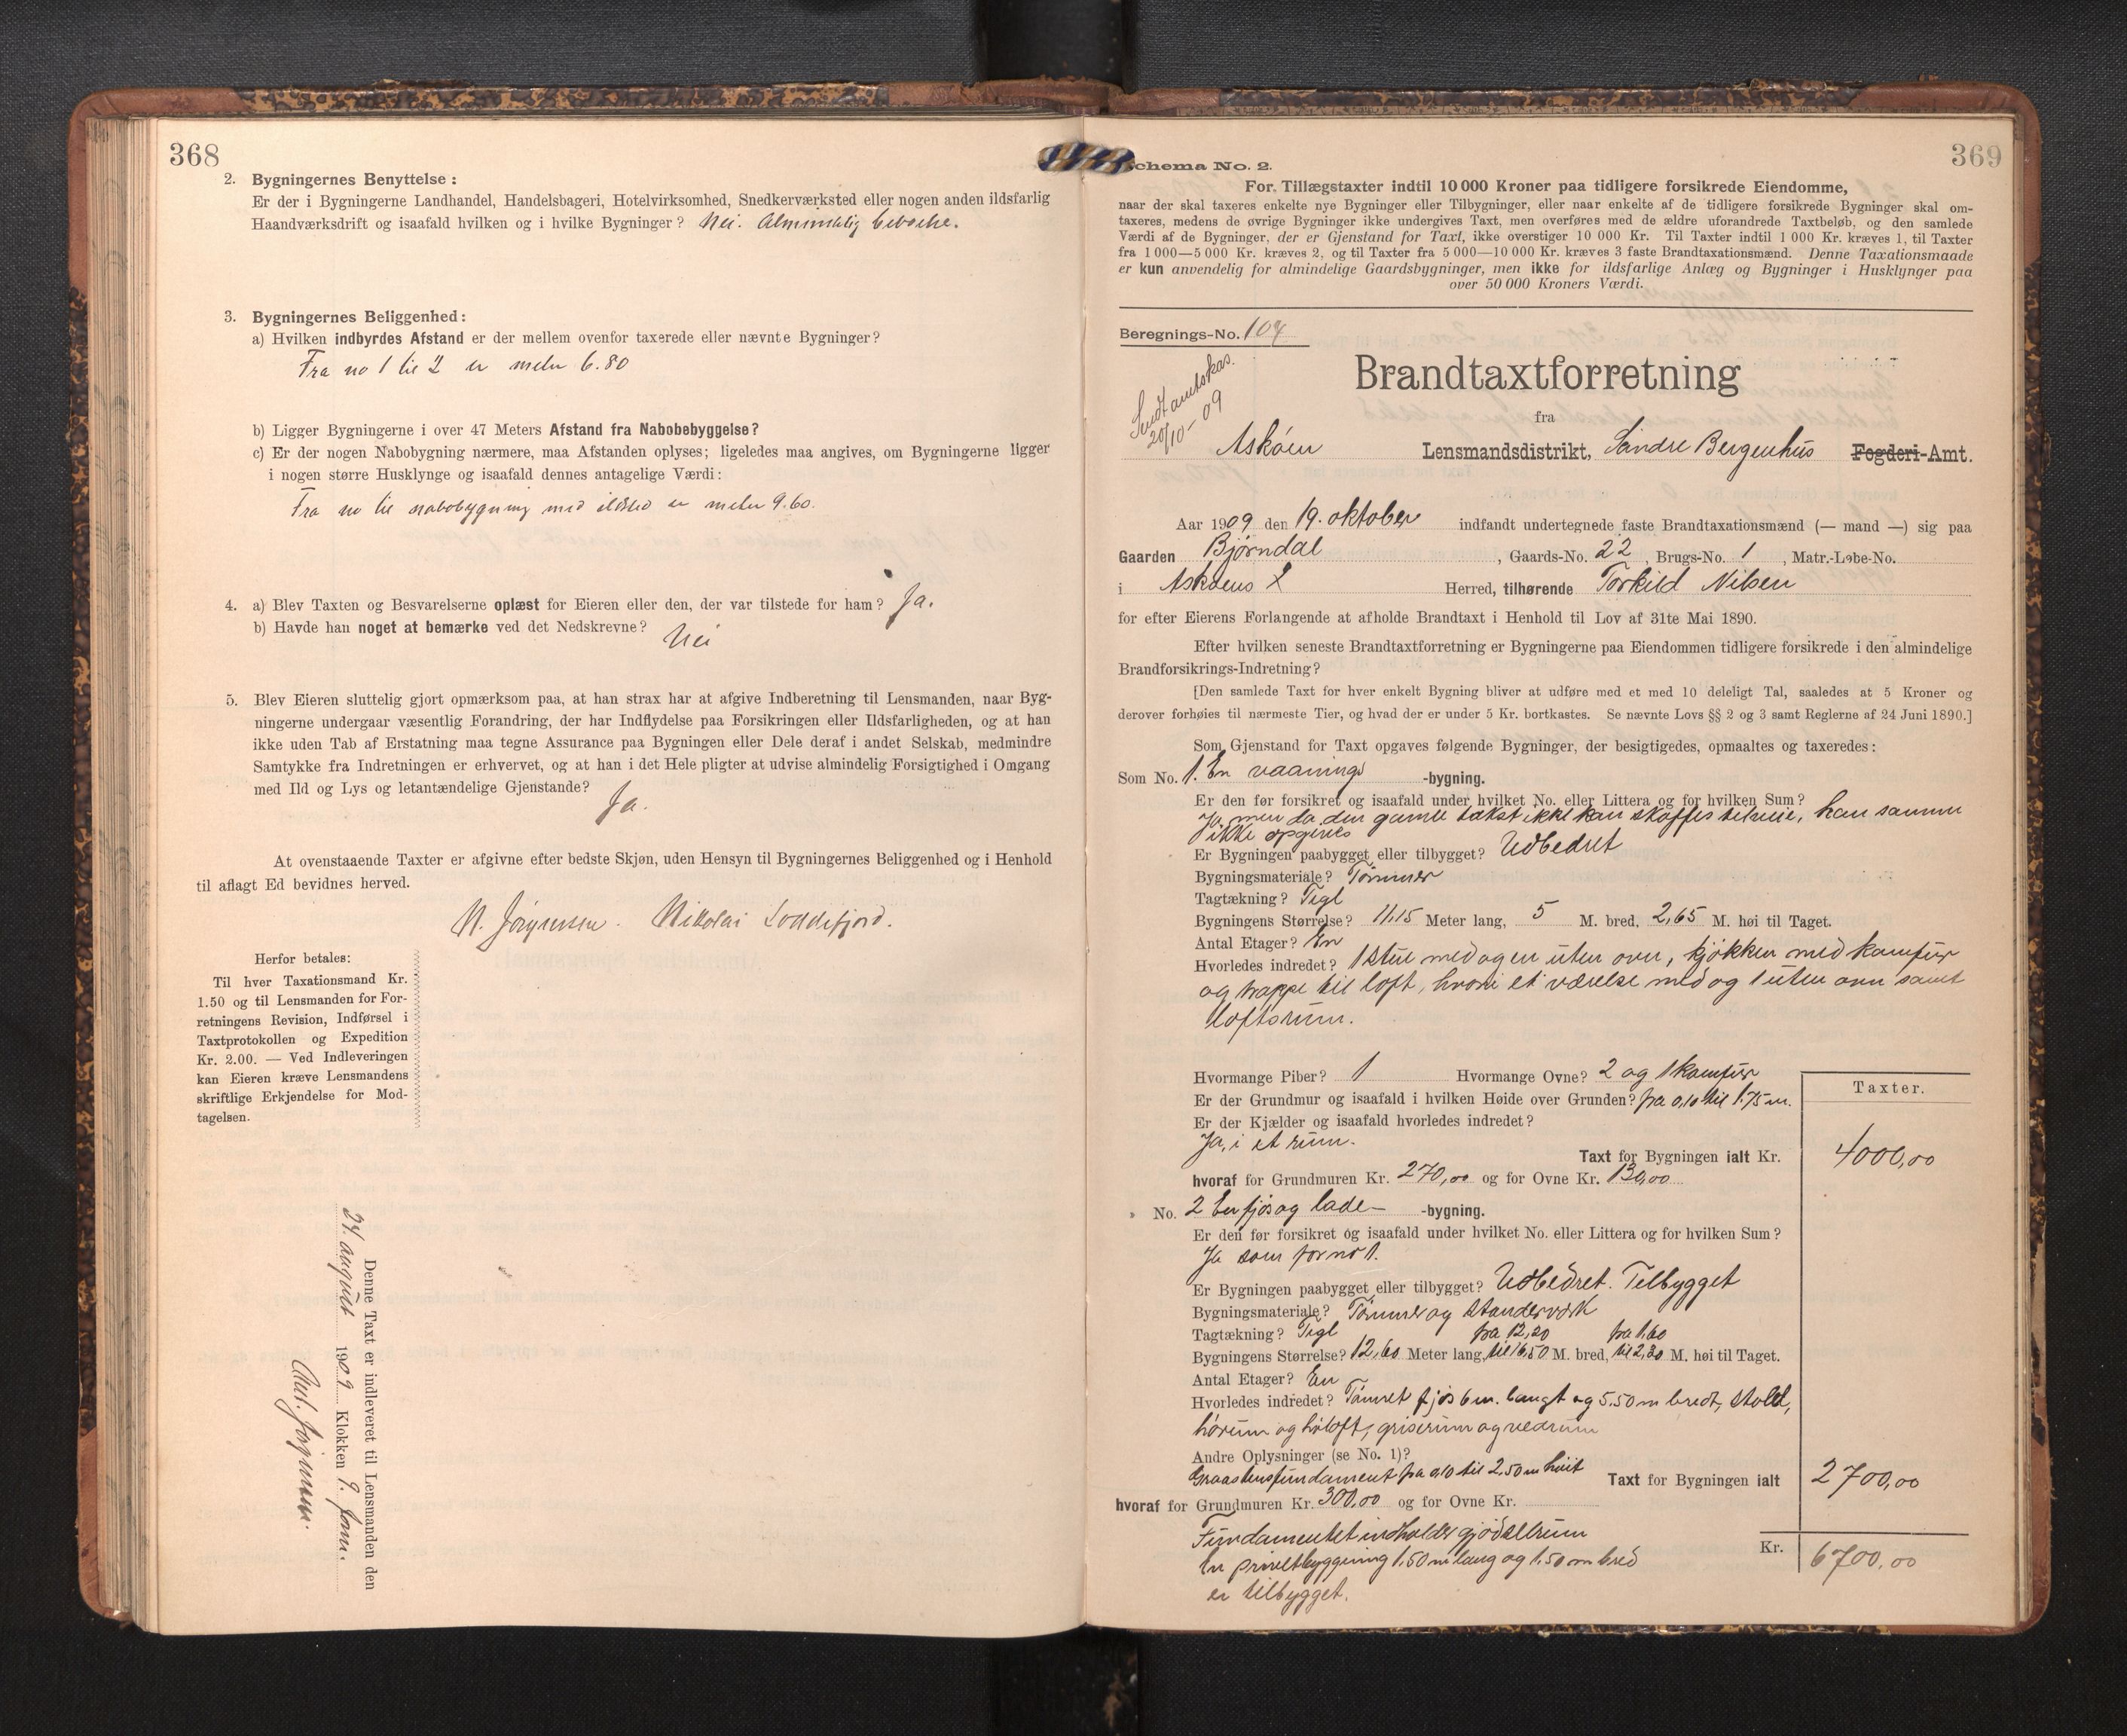 368
2. Bygningernes Benyttelse:
Er der i Bygningerne Landhandel, Handelsbageri, Hotelvirksomhed, Snedkerværksted eller nogen anden ildsfarlig
Haandværksdrift og isaafald hvilken og i hvilke Bygninger? Nei. Almindelig beboelse.
3. Bygningernes Beliggenhed:
a) Hvilken indbyrdes Afstand er der mellem ovenfor taxerede eller nævnte Bygninger?
Fra no 1 til 2 er meter 6.80
b) Ligger Bygningerne i over 47 Meters Afstand fra Nabobebyggelse?
c) Er der nogen Nabobygning nærmere, maa Afstanden oplyses; ligeledes maa angives, om Bygningerne ligger
i nogen større Husklynge og isaafald dennes antagelige Værdi:
Fra no til nabobygning med ildsted er meter 9.60.
4. a) Blev Taxten og Besvarelserne oplæst for Eieren eller den, der var tilstede for ham? Ja.
b) Havde han noget at bemærke ved det Nedskrevne? Nei
5. Blev Eieren sluttelig gjort opmærksom paa, at han strax har at afgive Indberetning til Lensmanden, naar Byg-
ningerne undergaar væsentlig Forandring, der har Indflydelse paa Forsikringen eller Ildsfarligheden, og at han
ikke uden Tab af Erstatning maa tegne Assurance paa Bygningen eller Dele deraf i andet Selskab, medmindre
Samtykke fra Indretningen er erhvervet, og at han i det Hele pligter at udvise almindelig Forsigtighed i Omgang
med Ild og Lys og letantændelige Gjenstande? Ja.
At ovenstaaende Taxter er afgivne efter bedste Skjøn, uden Hensyn til Bygningernes Beliggenhed og i Henhold
til aflagt Ed bevidnes herved.
N. Jörgensen. Nikolai Loddefjord.
Herfor betales:
Til hver Taxationsmand Kr.
1.50 og til Lensmanden for For-
retningens Revision, Indførsel i
Taxtprotokollen og Expedition
Kr. 2.00. — Ved Indleveringen
kan Eieren kræve Lensmandens
skriftlige Erkjendelse for Mod-
tagelsen.
Denne Taxt er indleveret til Lensmanden den
24. august 1909 Klokken 9. form.
369
Schema No. 2.
For Tillægstaxter indtil 10 000 Kroner paa tidligere forsikrede Eiendomme,
naar der skal taxeres enkelte nye Bygninger eller Tilbygninger, eller naar enkelte af de tidligere forsikrede Bygninger skal om-
taxeres, medens de øvrige Bygninger ikke undergives Taxt, men overføres med de ældre uforandrede Taxtbeløb, og den samlede
Værdi af de Bygninger, der er Gjenstand for Taxt, ikke overstiger 10 000 Kr. Til Taxter indtil 1 000 Kr. kræves 1, til Taxter
fra 1 000—5 000 Kr. kræves 2, og til Taxter fra 5 000—10 000 Kr. kræves 3 faste Brandtaxationsmænd. Denne Taxationsmaade
er kun anvendelig for almindelige Gaardsbygninger, men ikke for ildsfarlige Anlæg og Bygninger i Husklynger paa
over 50 000 Kroners Værdi.
Beregnings-No. 104
Sendt amtskas.
20/10-09
Brandtaxtforretning
fra
Askøen Lensmandsdistrikt, Söndre Bergenhus Fogderi-Amt.
Aar 1909 den 19. oktober indfandt undertegnede faste Brandtaxationsmænd (— mand —) sig paa
Gaarden Bjørndal, Gaards-No. 22, Brugs-No. 1, Matr.-Løbe-No.
i Askøens Herred, tilhørende Torkild Nilsen
for efter Eierens Forlangende at afholde Brandtaxt i Henhold til Lov af 31te Mai 1890.
Efter hvilken seneste Brandtaxtforretning er Bygningerne paa Eiendommen tidligere forsikrede i den almindelige
Brandforsikrings-Indretning?
[Den samlede Taxt for hver enkelt Bygning bliver at udføre med et med 10 deleligt Tal, saaledes at 5 Kroner og
derover forhøies til nærmeste Tier, og hvad der er under 5 Kr. bortkastes. Se nævnte Lovs §§ 2 og 3 samt Reglerne af 24 Juni 1890.]
Som Gjenstand for Taxt opgaves følgende Bygninger, der besigtigedes, opmaaltes og taxeredes:
Som No. 1. En vaanings -bygning.
Er den før forsikret og isaafald under hvilket No. eller Littera og for hvilken Sum?
Ja, men da den gamle takst ikke kan skaffes tilveie, kan samme
ikke opgives
Er Bygningen paabygget eller tilbygget? Udbedret
Bygningsmateriale? Tømmer
Tagtækning? Tegl
Bygningens Størrelse? 11,15 Meter lang, 5 M. bred, 2,65 M. høi til Taget.
Antal Etager? En
Hvorledes indredet? 1 stue med og en uten ovn, kjøkken med komfür
og trappe til loft, hvori et værelse med og 1 uten ovn samt
loftsrum.
Hvormange Piber? 1 Hvormange Ovne? 2 og 1 komfür
Er der Grundmur og isaafald i hvilken Høide over Grunden? fra 0,10 til 1.75 m.
Er der Kjælder og isaafald hvorledes indredet?
Ja, i et rum.
Taxter.
Taxt for Bygningen ialt Kr. 4000,00
hvoraf for Grundmuren Kr. 270,00 og for Ovne Kr. 130,00
No. 2 En fjøs og lade- -bygning.
Er den før forsikret og isaafald under hvilket No. eller Littera og for hvilken Sum?
Ja som for no 1.
Er Bygningen paabygget eller tilbygget? Udbedret. Tilbygget
Bygningsmateriale? Tømmer og standerverk
Tagtækning? Tegl fra 12,20 fra 1,60
Bygningens Størrelse? 12,60 Meter lang, til 16,50 M. bred, til 2,30 M. høi til Taget.
Antal Etager? En
Hvorledes indredet? Tømret fjøs 6 m. langt og 5.50 m bredt, stald,
hørum og høloft, griserum og vedrum
Andre Oplysninger (se No. 1)?
Graastensfundament fra 0,10 til 2,50 m høit Taxt for Bygningen ialt 2700,00
hvoraf for Grundmuren Kr. 300,00 og for Ovne Kr.
Fundamentet indholder gjødselrum Kr. 6700,00
En privetbyggning 1,50 m lang og 1,50 m bred
er tilbygget.